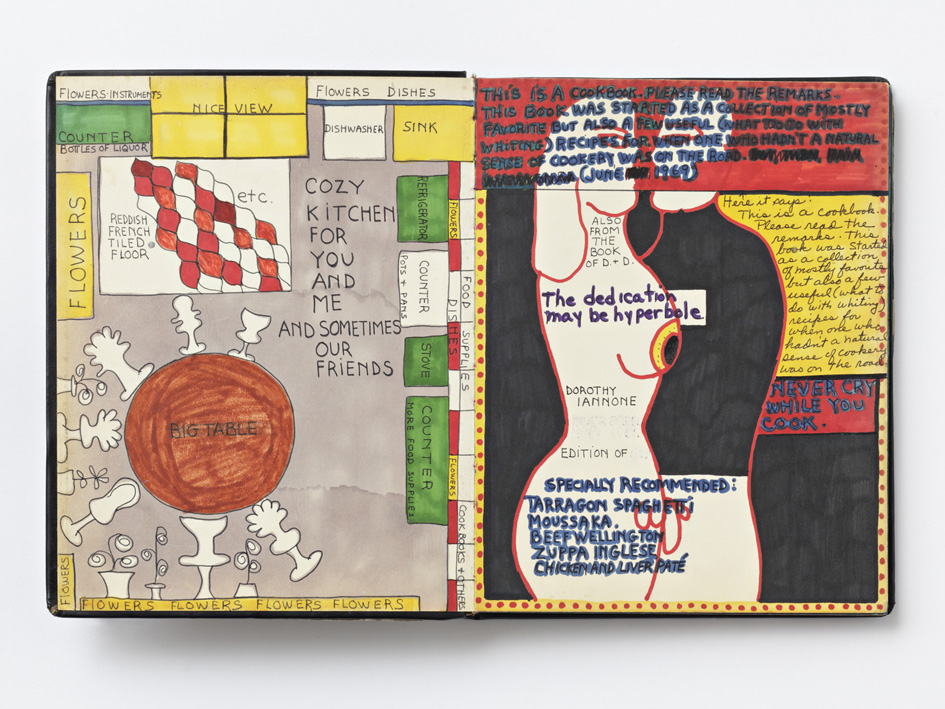 FLOWERS·INSTRUMENTS
NICE VIEW
FLOWERS DISHES
COUNTER
BOTTLES OF LIQUOR
DISHWASHER
SINK
FLOWERS
REDDISH
FRENCH
TILED
FLOOR
etc.
COZY
KITCHEN
FOR
YOU
AND
ME
AND SOMETIMES
OUR
FRIENDS
REFRIGERATOR
POTS + PANS
COUNTER
STOVE
COUNTER
MORE FOOD SUPPLIES
FLOWERS
DISHES
FLOWERS
FOOD SUPPLIES
COOKBOOKS + OTHERS
BIG TABLE
FLOWERS
FLOWERS FLOWERS FLOWERS FLOWERS
THIS IS A COOKBOOK. PLEASE READ THE REMARKS.
THIS BOOK WAS STARTED AS A COLLECTION OF MOSTLY
FAVORITE BUT ALSO A FEW USEFUL (WHAT TO DO WITH
WHITING) RECIPES FOR WHEN ONE WHO HADN'T A NATURAL
SENSE OF COOKERY WAS ON THE ROAD.
(JUNE 1969)
ALSO
FROM
THE
BOOK
OF D. + D.
The dedication
may be hyperbole.
DOROTHY
IANNONE
EDITION OF
SPECIALLY RECOMMENDED:
TARRAGON SPAGHETTI
MOUSSAKA
BEEF WELLINGTON
ZUPPA INGLESE
CHICKEN AND LIVER PATÉ
Here it says:
This is a cookbook.
Please read the
remarks. This
book was started
as a collection
of mostly favorite
but also a few
useful (what to
do with whiting)
recipes for
when one who
hadn't a natural
sense of cookery
was on the road.
NEVER CRY
WHILE YOU
COOK.